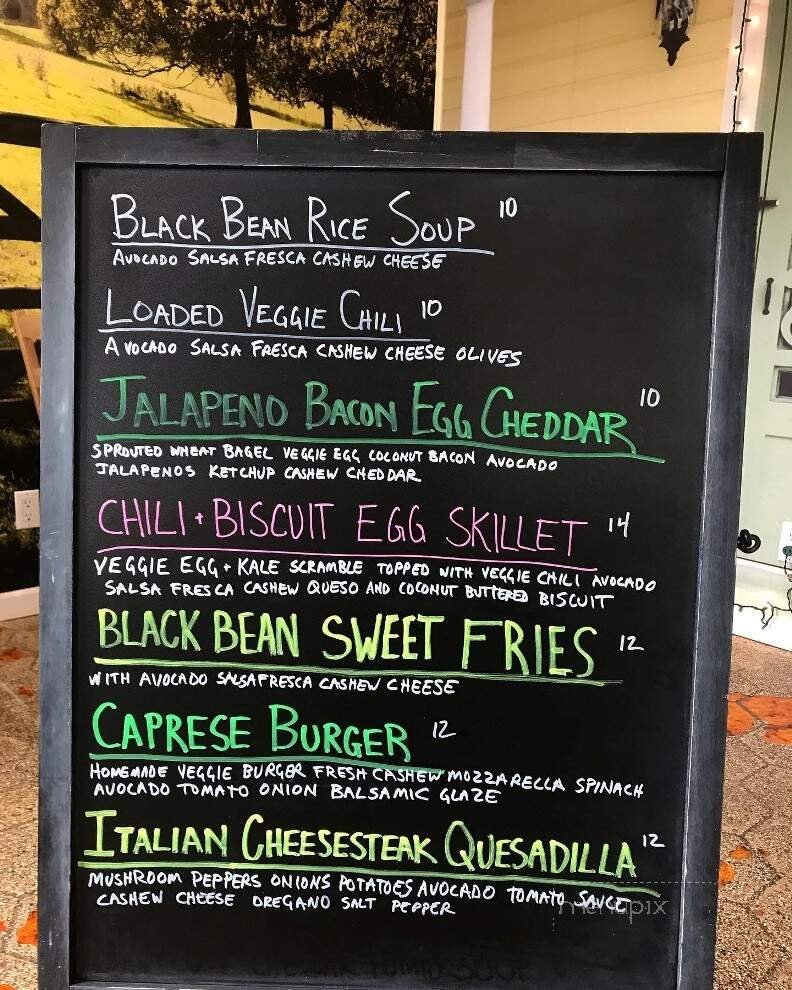 BLACK BEAN RICE SOUP 10
AVOCADO SALSA FRESCA CASHEW CHEESE
LOADED VEGGIE CHILI 10
AVOCADO SALSA FRESCA CASHEW CHEESE OLIVES
JALAPENO BACON EGG CHEDDAR 10
SPROUTED WHEAT BAGEL VEGGIE EGG COCONUT BACON AVOCADO
JALAPENOS KETCHUP CASHEW CHEDDAR
CHILI + BISCUIT EGG SKILLET 14
VEGGIE EGG + KALE SCRAMBLE TOPPED WITH VEGGIE CHILI AVOCADO
SALSA FRESCA CASHEW QUESO AND COCONUT BUTTERED BISCUIT
BLACK BEAN SWEET FRIES 12
WITH AVOCADO SALSA FRESCA CASHEW CHEESE
CAPRESE BURGER 12
HOMEMADE VEGGIE BURGER FRESH CASHEW MOZZARELLA SPINACH
AVOCADO TOMATO ONION BALSAMIC GLAZE
ITALIAN CHEESESTEAK QUESADILLA 12
MUSHROOM PEPPERS ONIONS POTATOES AVOCADO TOMATO SAUCE
CASHEW CHEESE OREGANO SALT PEPPER
menupix